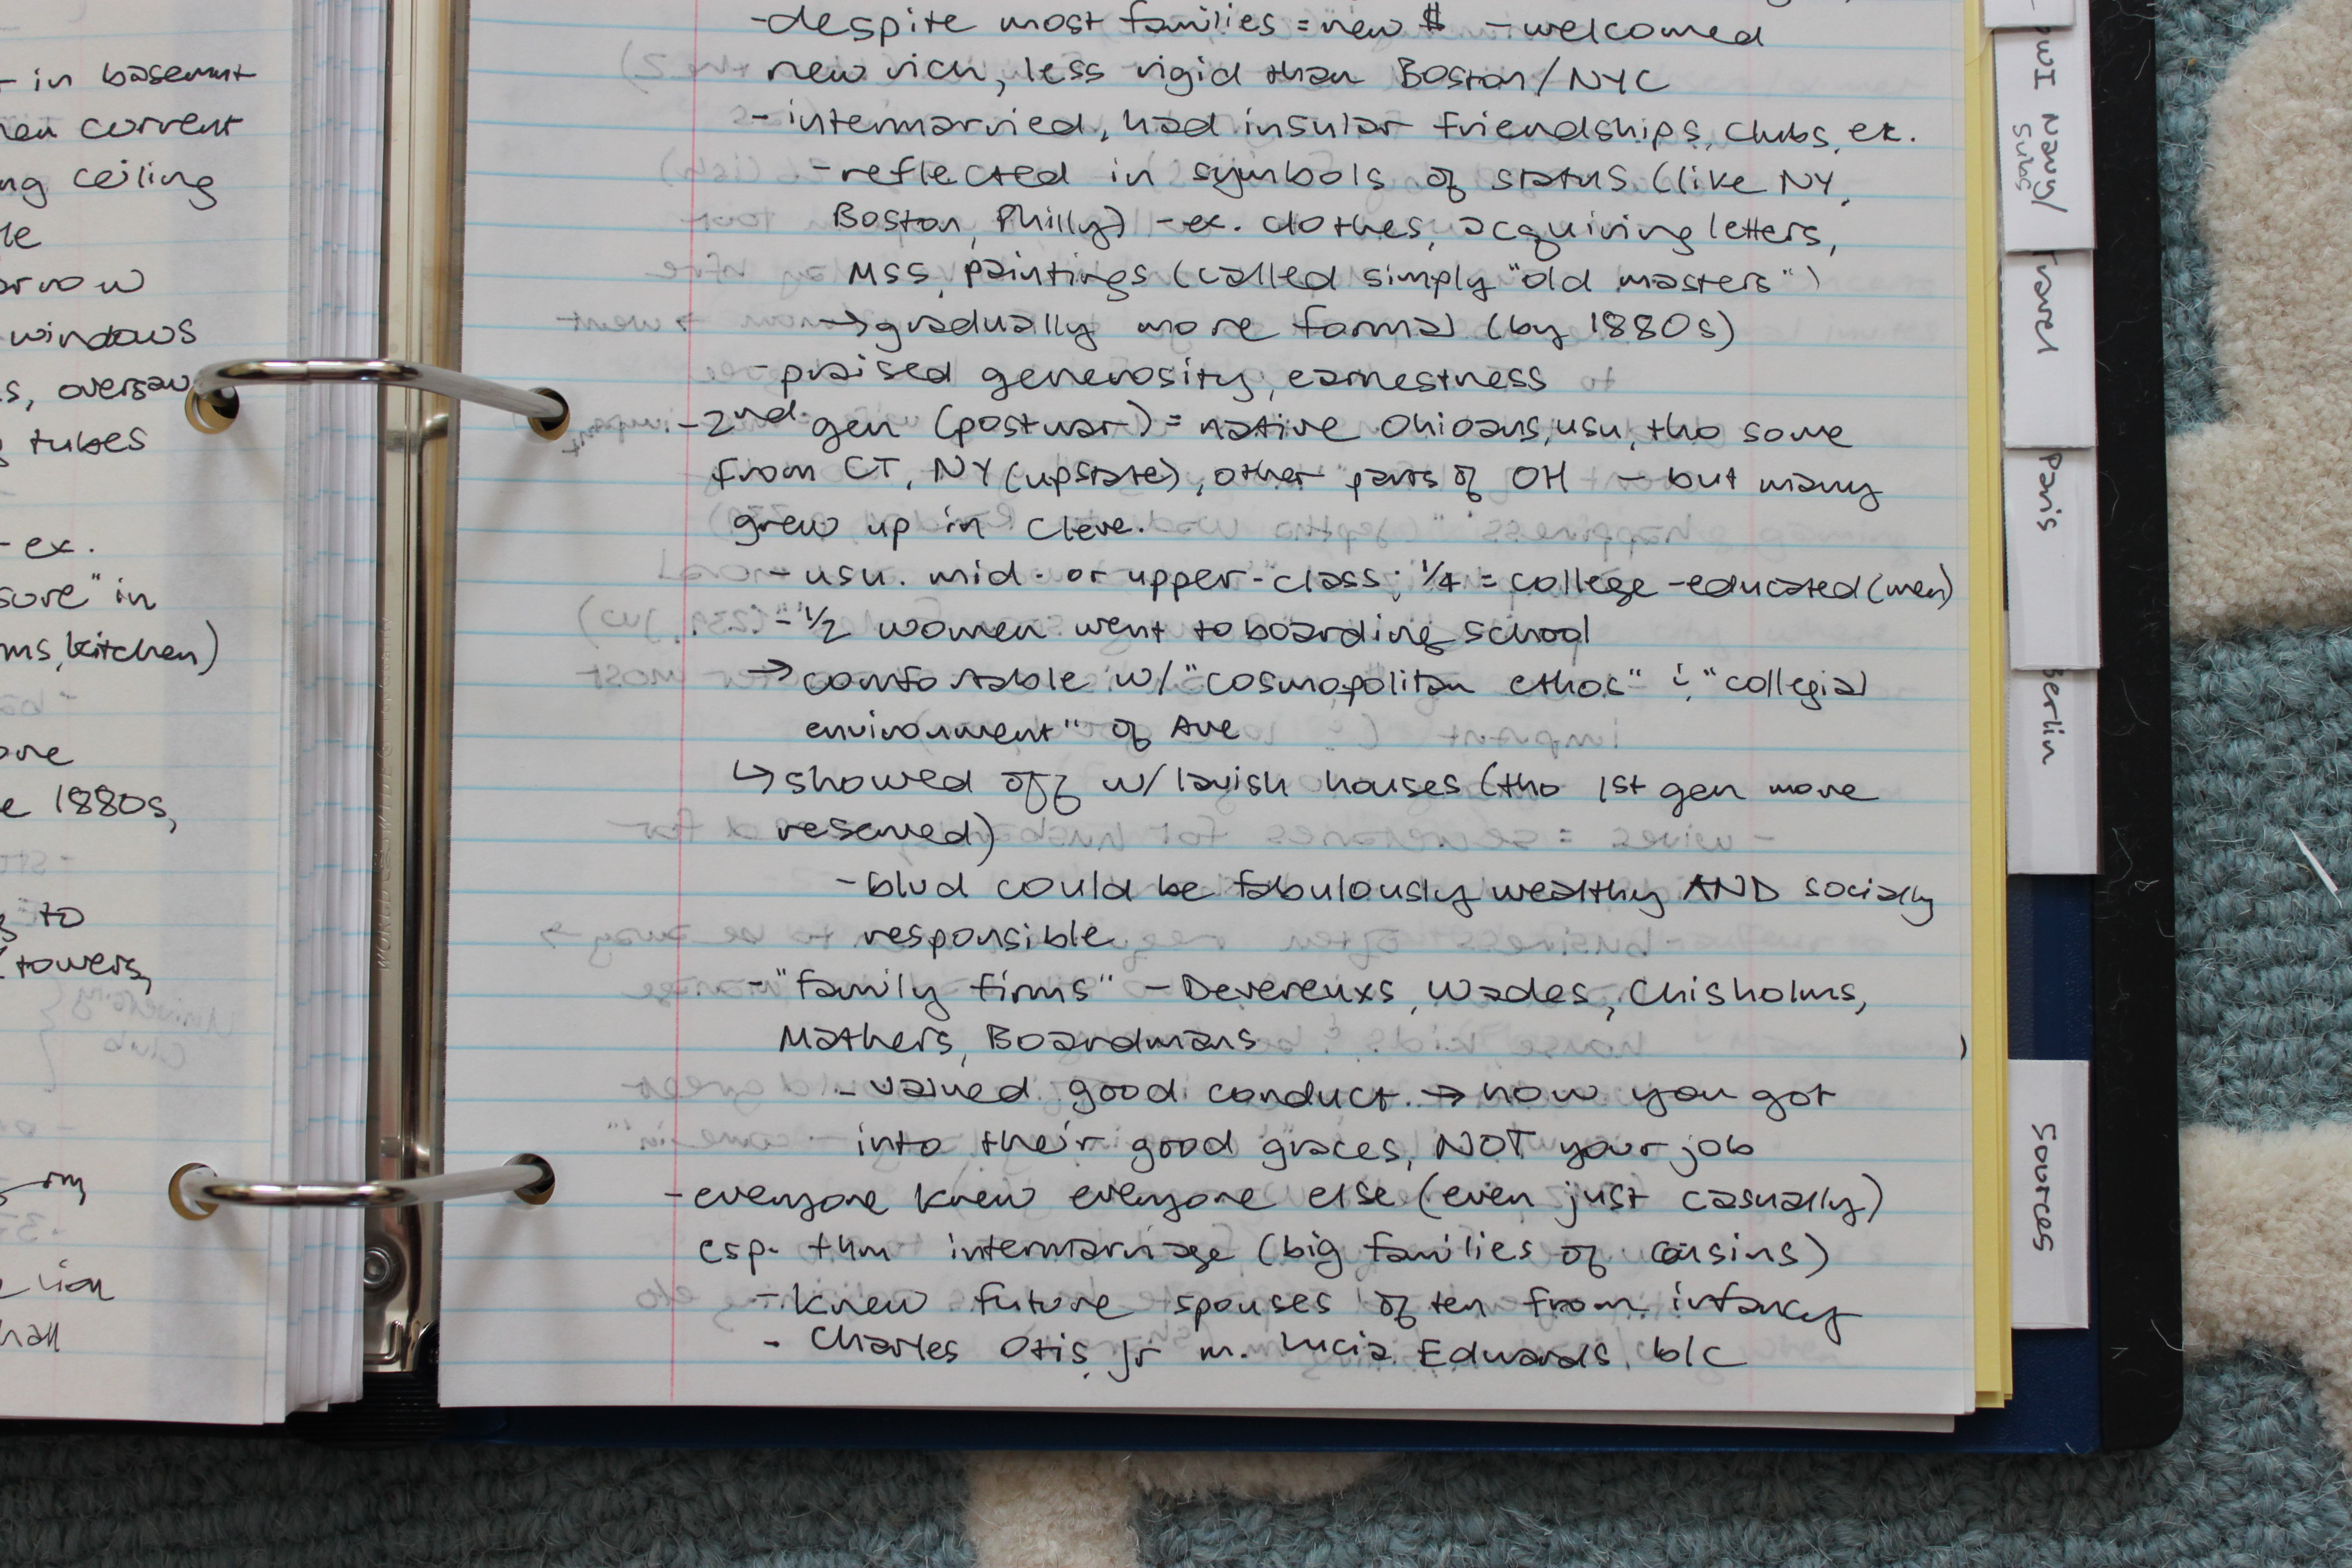 - in basemnt
current
ceiling
windows
tubes
- ex.
in
kitchen)
1880s,
to
towers,
-despite most families = new $ - welcomed
new rich, less rigid than Boston/NYC
- intermarried, had insular friendships, clubs, etc.
- reflected in symbols of status (like NY,
Boston, Philly) - ex. clothes, acquiring letters,
MSS, paintings (called simply "old masters")
→ gradually more formal (by 1880s)
- praised generosity, earnestness
- 2nd gen (postwar) = native Ohioans, usu, tho some
from CT, NY (upstate), other parts of OH - but many
grew up in Cleve.
- usu. mid- or upper-class; 1/4 = college-educated (men)
- 1/2 women went to boarding school
→ comfortable w/ "cosmopolitan ethos" & "collegial
environment" of Ave
↳ showed off w/ lavish houses (tho 1st gen more
reserved)
- blvd could be fabulously wealthy AND socially
responsible
- "family firms" - Devereuxs, Wades, Chisholms,
Mathers, Boardmans
- valued good conduct → how you got
into their good graces, NOT your job
- everyone knew everyone else (even just casually)
esp. thru intermarriage (big families of cousins)
- knew future spouses often from infancy
- Charles Otis Jr m. Lucia Edwards b/c
Navy/
Subs
Travel
Paris
Berlin
Sources